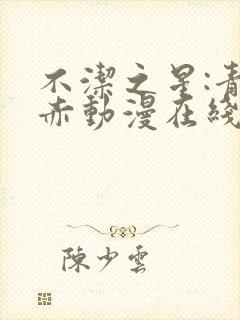 不潔之星:青
赤動漫在綫
陳少雲